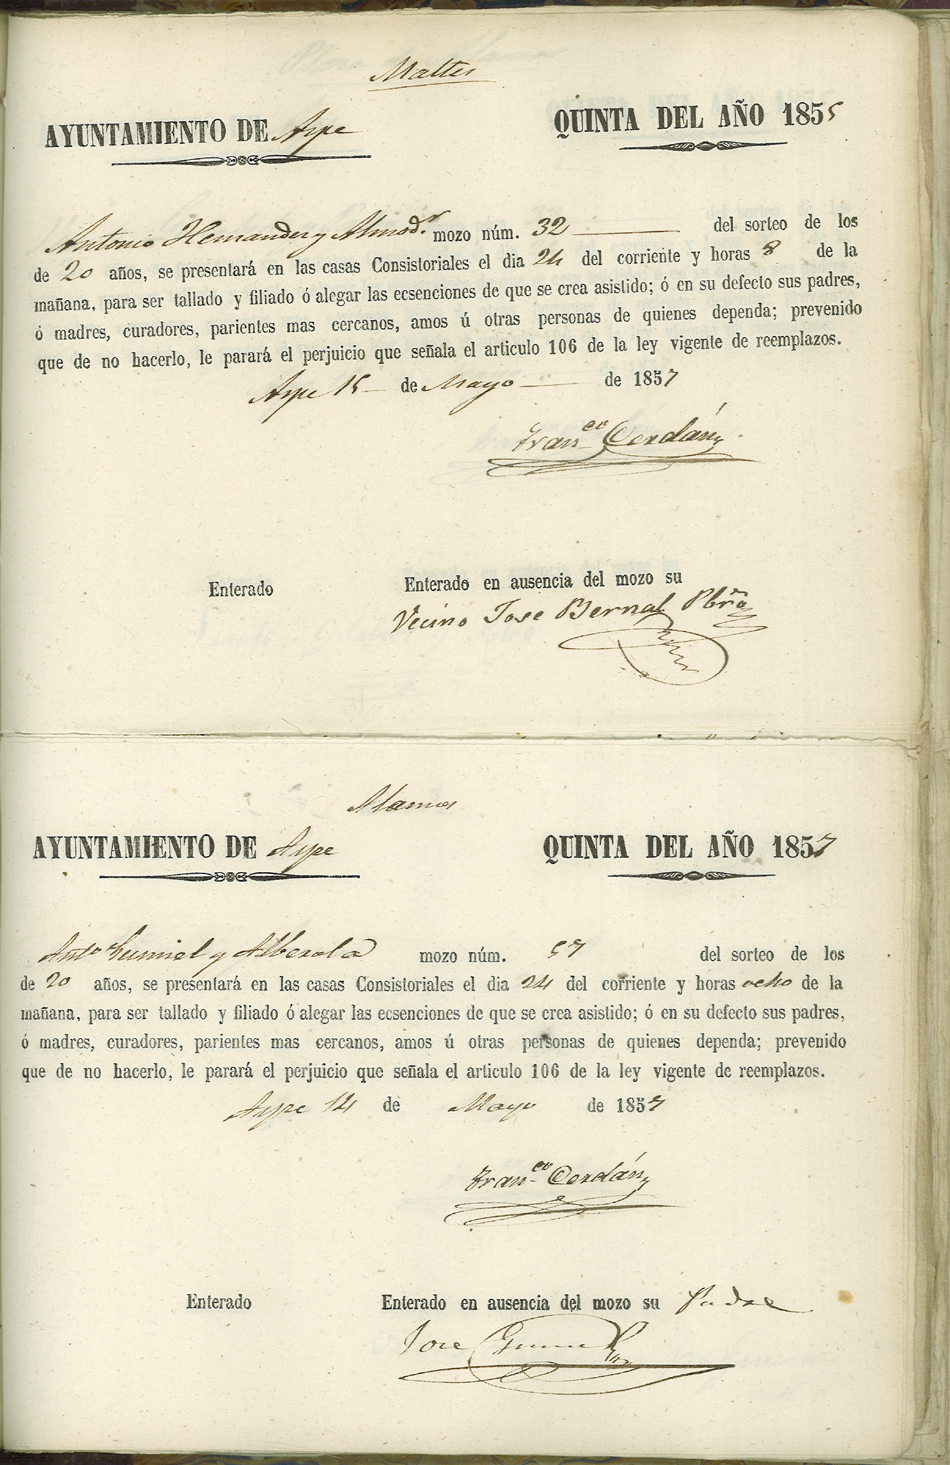 Maltes
AYUNTAMIENTO DE Aspe
QUINTA DEL AÑO 1855
Antonio Hernandez y Almod.r mozo núm. 32 del sorteo de los
de 20 años, se presentará en las casas Consistoriales el dia 24 del corriente y horas 8 de la
mañana, para ser tallado y filiado ó alegar las ecsenciones de que se crea asistido; ó en su defecto sus padres,
ó madres, curadores, parientes mas cercanos, amos ú otras personas de quienes dependa; prevenido
que de no hacerlo, le parará el perjuicio que señala el articulo 106 de la ley vigente de reemplazos.
Aspe 15 de Mayo de 1857
Fran.co Cerdán
Enterado
Enterado en ausencia del mozo su
Vecino Jose Bernal Pbro
Alamos
AYUNTAMIENTO DE Aspe
QUINTA DEL AÑO 1857
Ant.o Gumiel y Alberola mozo núm. 57 del sorteo de los
de 20 años, se presentará en las casas Consistoriales el dia 24 del corriente y horas ocho de la
mañana, para ser tallado y filiado ó alegar las ecsenciones de que se crea asistido; ó en su defecto sus padres,
ó madres, curadores, parientes mas cercanos, amos ú otras personas de quienes dependa; prevenido
que de no hacerlo, le parará el perjuicio que señala el articulo 106 de la ley vigente de reemplazos.
Aspe 14 de Mayo de 1857
Fran.co Cerdán
Enterado
Enterado en ausencia del mozo su Padre
Jose Gumiel